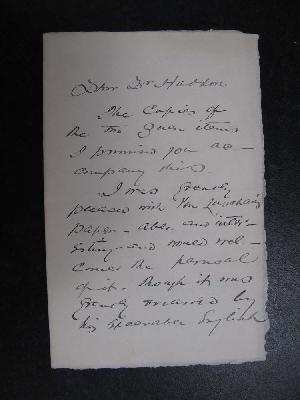 Dear Dr Haddon
The Copies of
the two Queer items
I promised you ac-
company this
I was greatly
pleased with
paper - able and inter-
esting - and would wel-
come the perusal
of it. though it was
greatly marred by
his execrable English